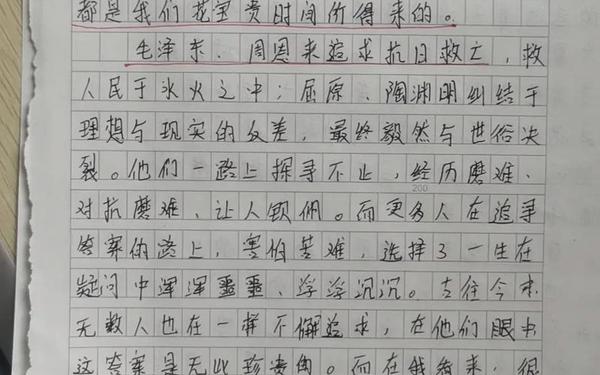 都是我们花宝贵时间价得来的。
毛泽东、周恩来追求抗日救亡，救
人民于水火之中；屈原、陶渊明纠结于
理想与现实的反差，最终毅然与世俗决
裂。他们一路上探寻不止，经历磨难、
200
对抗磨难、让人钦佩。而更多人在追寻
答案的路上，害怕苦难，选择了一生在
疑问中浑浑噩噩、浮浮沉沉。古往今来
无数人也在一样不懈追求，在他们眼中
这答案是无比珍贵的。而在我看来，很